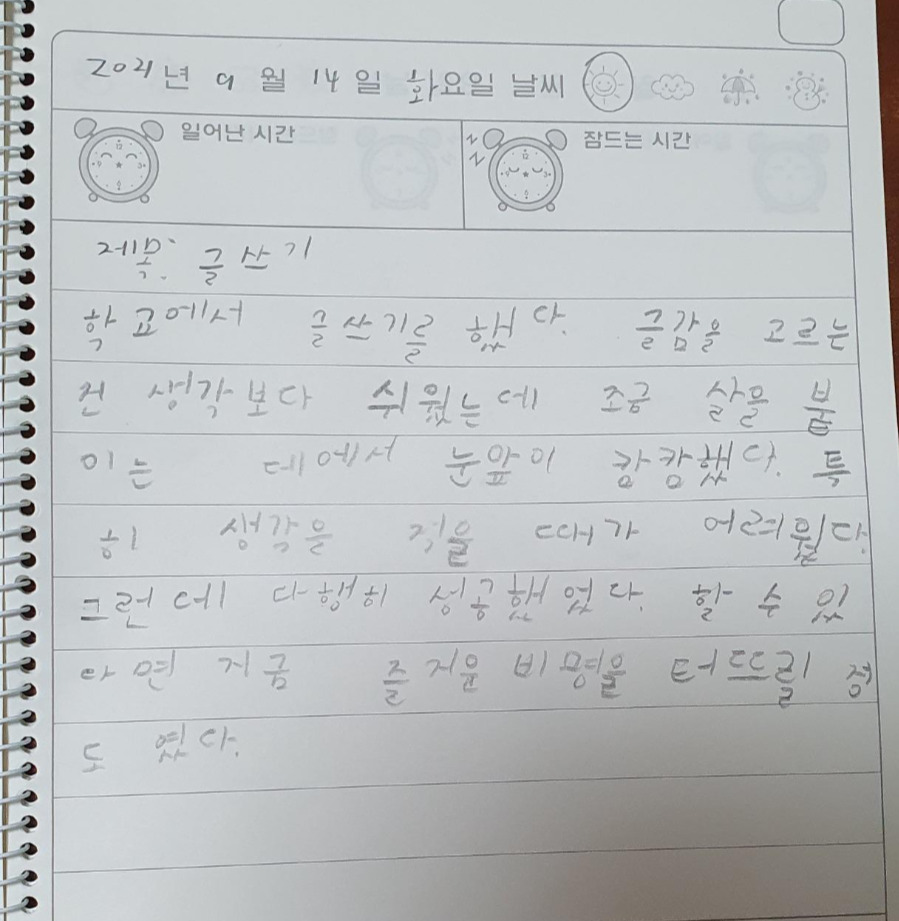 2021년 9월 14일 화요일 날씨
일어난 시간
잠드는 시간
제목: 글쓰기
학교에서 글쓰기를 했다. 글감을 고르는
건 생각보다 쉬웠는데 조금 살을 붙
이는 데에서 눈앞이 캄캄했다. 특
히 생각을 적을 때가 어려웠다.
그런데 다행히 성공했었다. 할 수 있
다면 지금 즐거운 비명을 터뜨릴 정
도 였다.